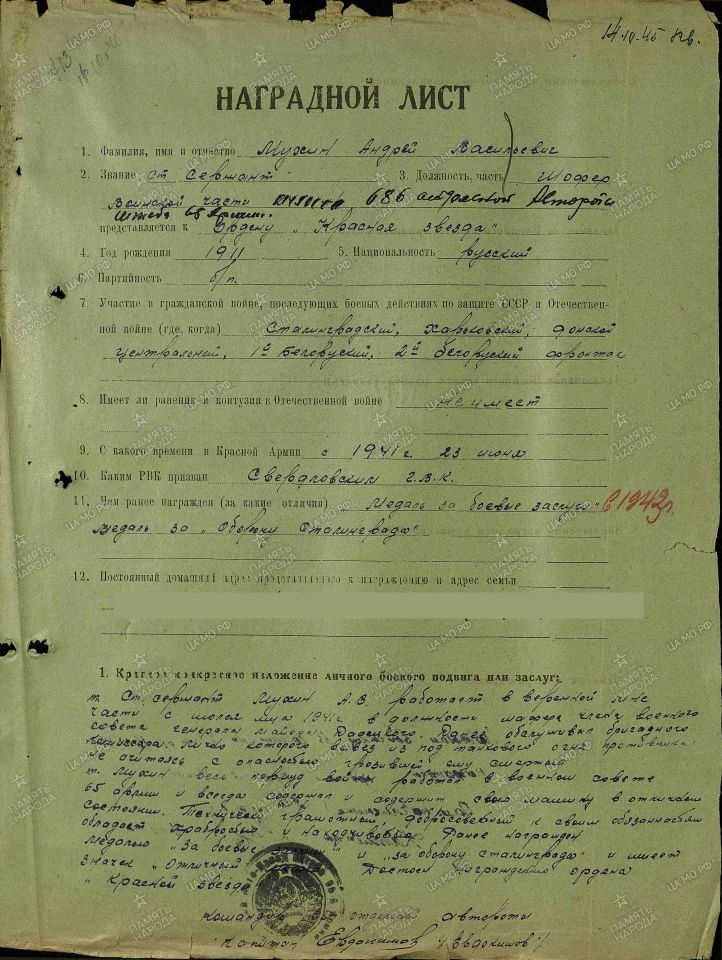 14 10-45
НАГРАДНОЙ ЛИСТ
1. Фамилия, имя и отчество Мухин Андрей Васильевич
2. Звание ст сержант 3. Должность, часть Шофер
Воинской части 686 отдельной Автороты
штаба 65 Армии.
представляется к Ордену „Красная звезда"
4. Год рождения 1911 5. Национальность русский
6. Партийность б/п.
7. Участие в гражданской войне, последующих боевых действиях по защите СССР и Отечествен-
ной войне (где, когда) Сталинградский, Харьковский, донской
центральный, 1й Белоруский, 2й белоруский фронтах
8. Имеет ли ранения и контузии в Отечественной войне не имеет
9. С какого времени в Красной Армии с 1941 г. 23 июня
10. Каким РВК призван Свердловским г.в.к.
11. Чем ранее награжден (за какие отличия) Медаль за боевые заслуги" в 1943г.
медаль за „Оборону Сталинграда"
12. Постоянный домашний адрес представляемого к награждению и адрес семьи
1. Краткое конкретное изложение личного боевого подвига или заслуг:
т. Ст. сержант Мухин А.В. работает в веренной мне
части с 1941г. в должности шофера члену военного
совета генерала майора Радецкого. Ранее обслуживал бригадного
комиссара. лично которого вывез из под танкового огня противника
не считаясь с опасностью грозившей ему смертью
т. Мухин весь период войны работал в военном совете
65 армии и всегда содержал и содержит свою машину в отличном
состоянии. Технически грамотный, добросовестный к своим обязанностям
обладает храбростью и находчивостью. Ранее награжден
медалью „За боевые" и „за оборону сталинграда" и имеет
значек „Отличный Достоин Награждения ордена
„Красной звезда
Командир отдельной автороты
Капитан Евдокимов /Евдокимов/